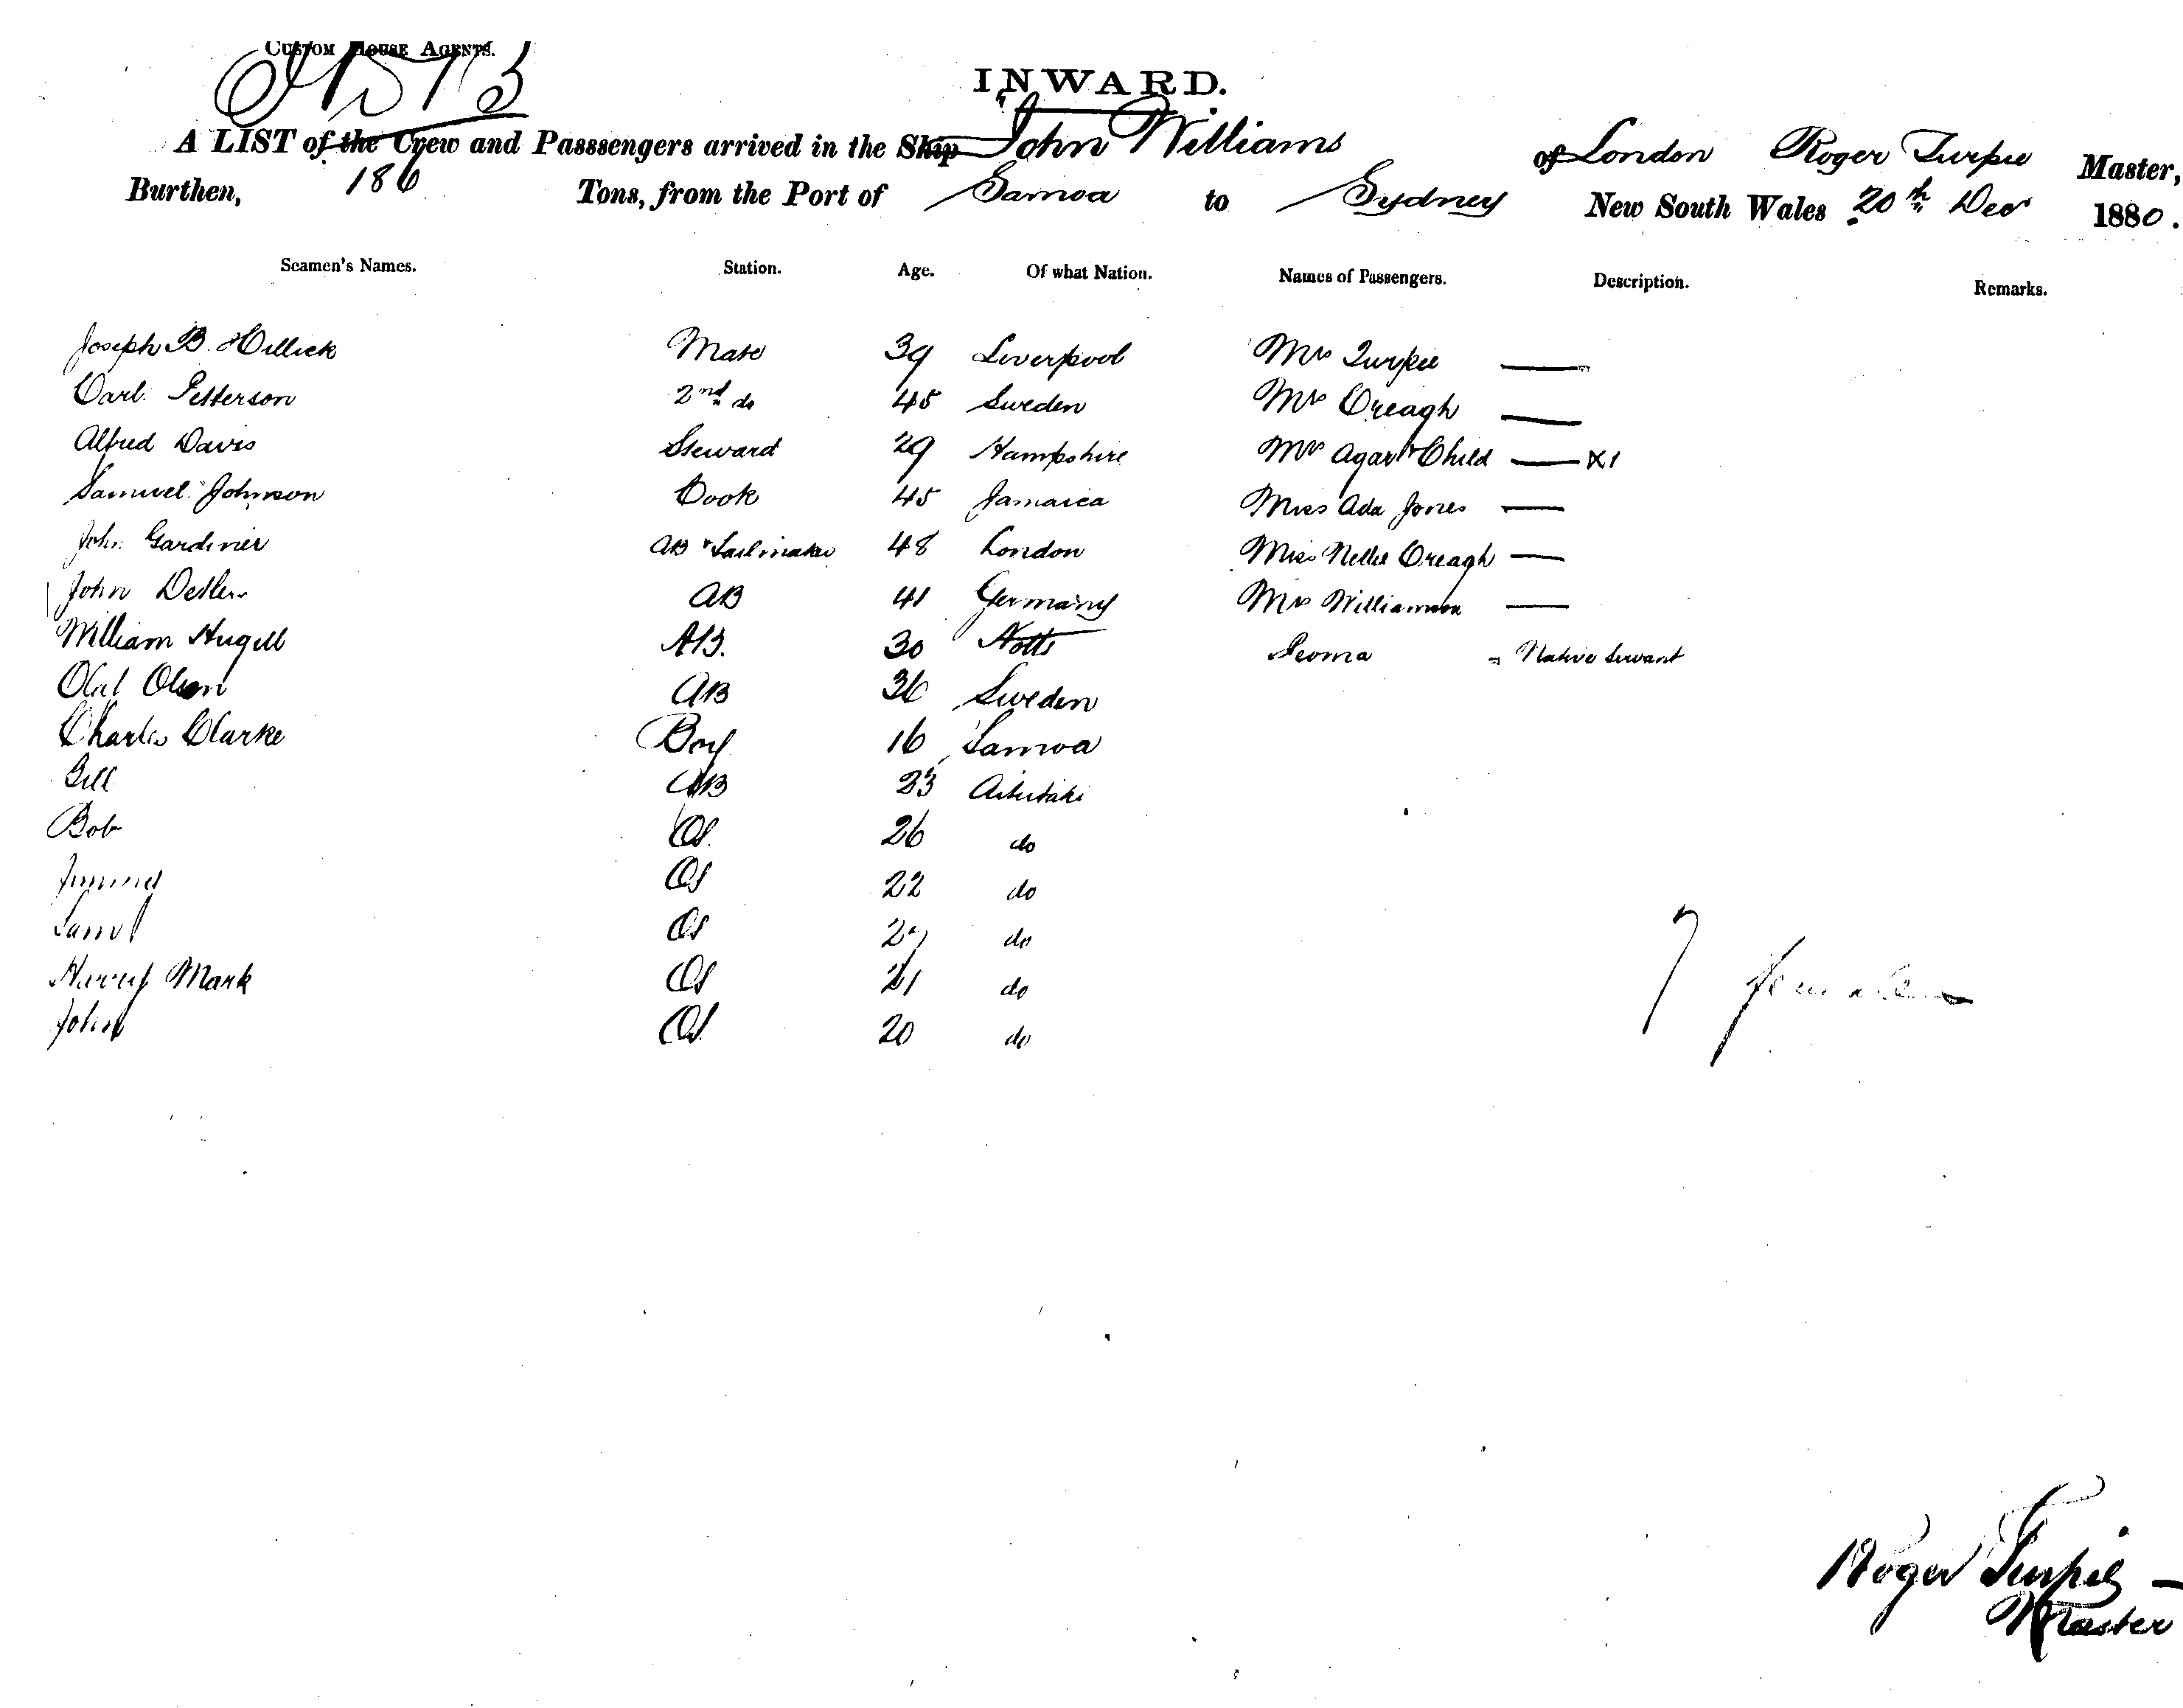 CUSTOM HOUSE AGENTS.
INWARD.
A LIST of the Crew and Passsengers arrived in the Ship "John Williams" of London Roger Turpie Master,
Burthen, 186 Tons, from the Port of Samoa to Sydney New South Wales 20th Decr 1880.
Seamen's Names. Station. Age. Of what Nation. Names of Passengers. Description. Remarks.
Joseph B. Hillick Mate 39 Liverpool Mrs Turpie
Carl Petterson 2nd do 45 Sweden Mrs Creagh
Alfred Davis Steward 29 Hampshire Mrs Agar & Child X1
Samuel Johnson Cook 45 Jamaica Miss Ada Jones
John Gardiner AB & Sailmaker 48 London Miss Nellie Creagh
John Detlev AB 41 Germany Mrs Williamson
William Hugill AB. 30 Notts Native Servant
Olaf Olsen AB 36 Sweden
Charles Clarke Boy 16 Samoa
Bill AB 23 Aitutaki
Bob OS. 26 do
Jimmy OS 22 do
Saml OS do
Harry Mark OS 21 do
John OS. 20 do
7 females
Roger Turpie
Master